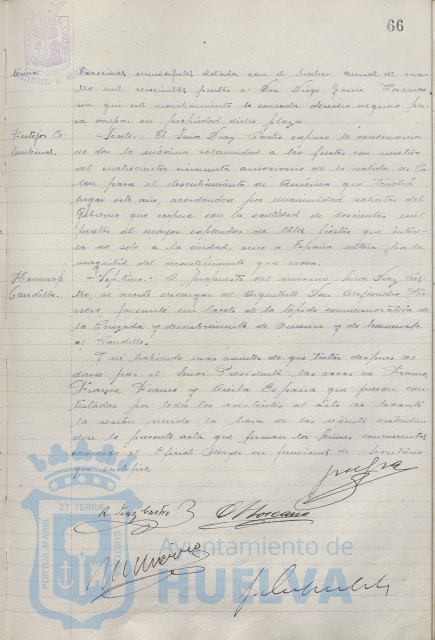 66
Exacciones municipales dotada con el haber anual de cua-
tro mil novecientas pesetas a Don Diego García
sin que este nombramiento le conceda derecho alguno pa-
ra ocupar en propiedad dicha plaza.
Festejos Co-
lombinos.
- Sexto.- El Señor Díaz Castro expuso la conveniencia
de dar la máxima solemnidad a las fiestas con motivo
del cuatrocientos cincuenta aniversario de la salida de Co-
lon para el descubrimiento de América que tendrá
lugar este año, acordándose por unanimidad solicitar del
Gobierno que coopere con la cantidad de doscientas mil
pesetas al mayor esplendor de tales fiestas que intere-
sa no solo a la ciudad, sino a España entera por la
magnitud del acontecimiento que evoca.
Homenaje
Caudillo.
- Septimo.- A propuesta del mismo Señor Díaz Cas-
tro, se acordó encargar al Arquitecto Don Alejandro He-
rrero, formule un boceto de la lápida conmemorativa de
la Cruzada y descubrimiento de America y de homenaje
al Caudillo.
Y no habiendo más asuntos de que tratar después de
darse por el Señor Presidente las voces de Franco,
Franco, Franco y Arriba España que fueron con-
testadas por todos los asistentes al acto se levantó
la sesión siendo la hora de las veinte extendien-
dose la presente acta que firman los Señores concurrentes
conmigo el Oficial Mayor en funciones de Secretario
que certifico.
R. Díaz Castro
ET TERRÆ
PORTUS MARIS
CUSTODIA
Ayuntamiento de
HUELVA